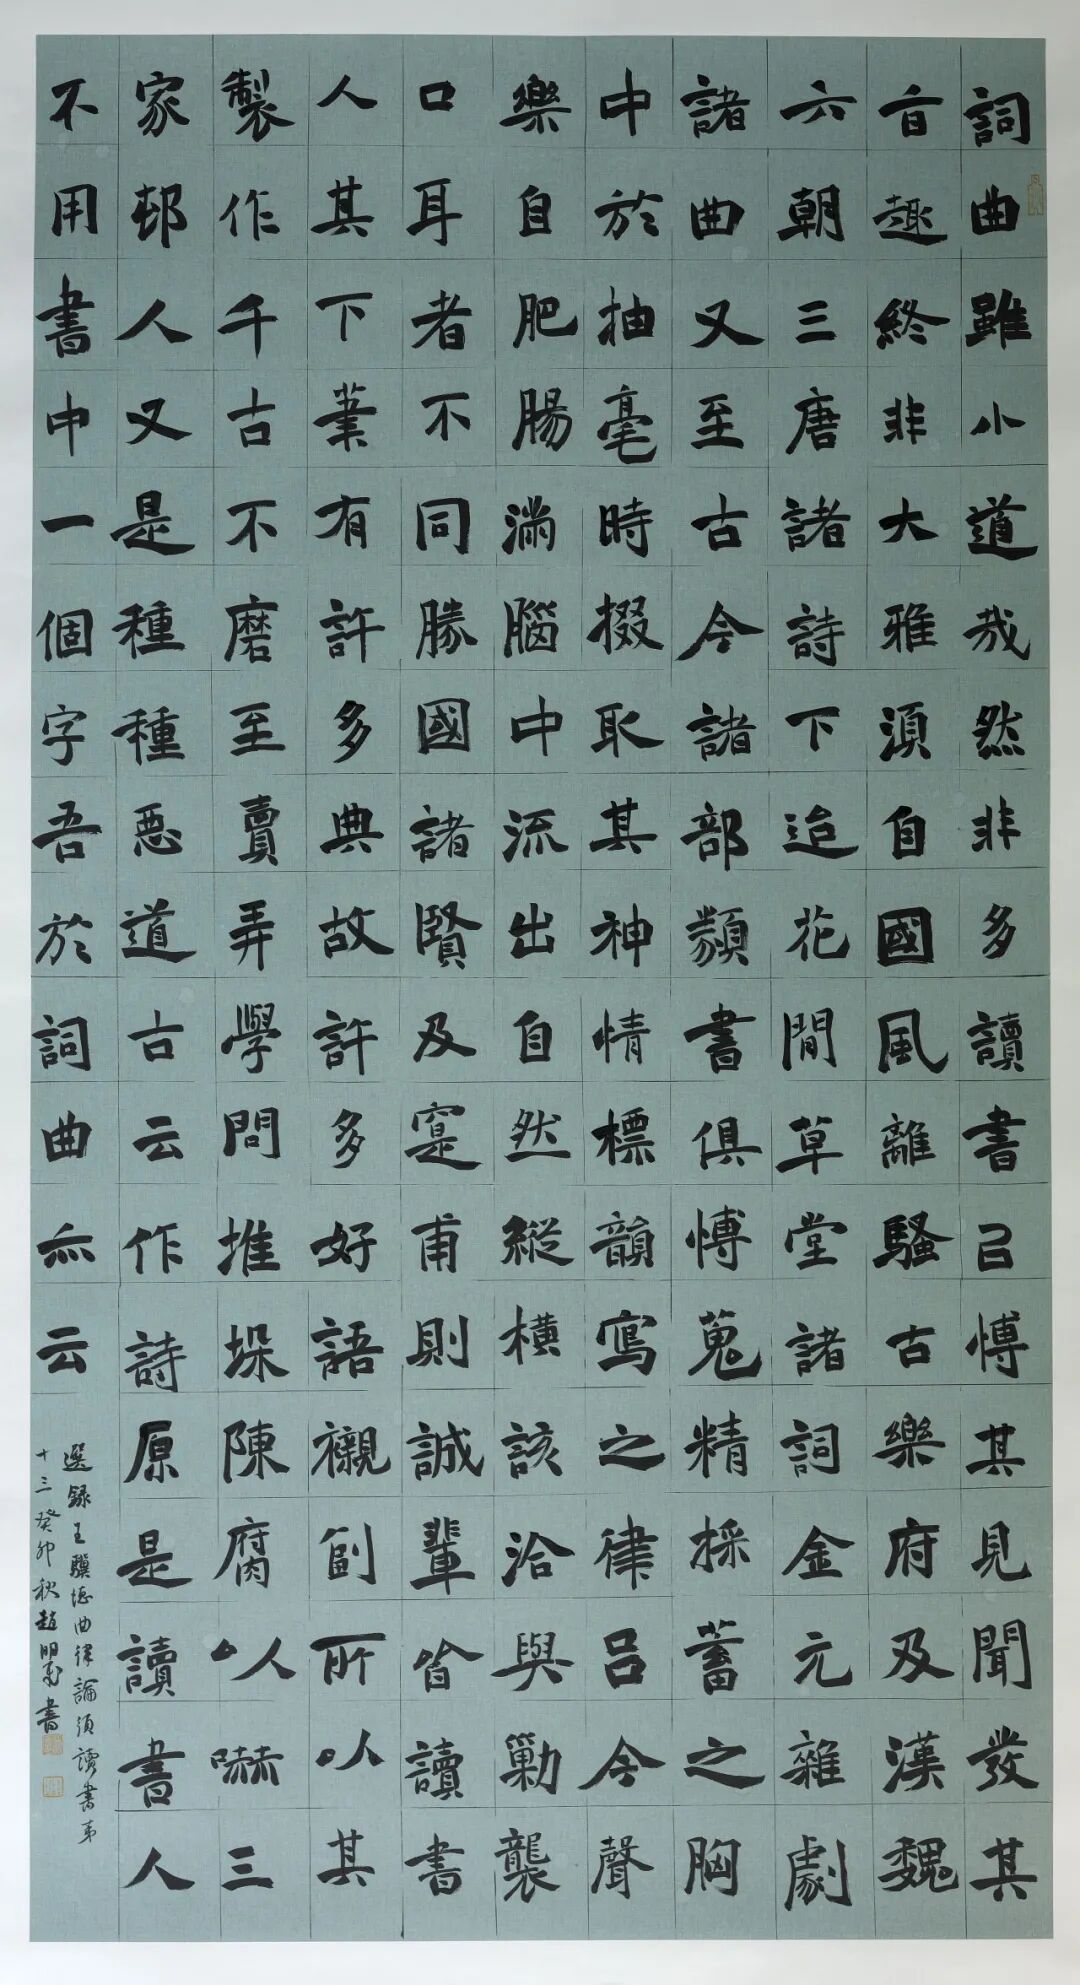 詞曲雖小道哉然非多讀書㠯愽其見聞發其
旨趣終非大雅須自國風離騷古樂府及漢魏
六朝三唐諸詩下迨花間草堂諸詞金元雜劇
諸曲又至古今諸部類書俱愽蒐精採蓄之胸
中於抽毫時掇取其神情標韻寫之律呂今聲
樂自肥腸滿腦中流出自然縱橫該洽與勦襲
口耳者不同勝國諸賢及寔甫則誠輩皆讀書
人其下筆有許多典故許多好語襯副所以其
製作千古不磨至賣弄學問堆垛陳腐以嚇三
家邨人又是種種惡道古云作詩原是讀書人
不用書中一個字吾於詞曲亦云
選錄王驥悳曲律論須讀書第
十三癸卯秋趙明書